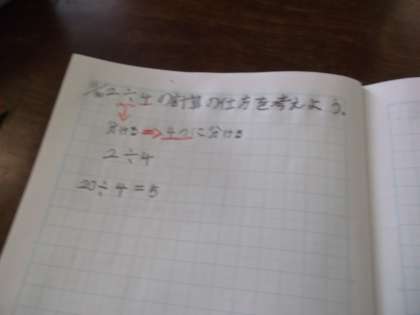 2÷4の計算の仕方を考えよう。
分ける⇒4つに分ける
2÷4
20÷4=5